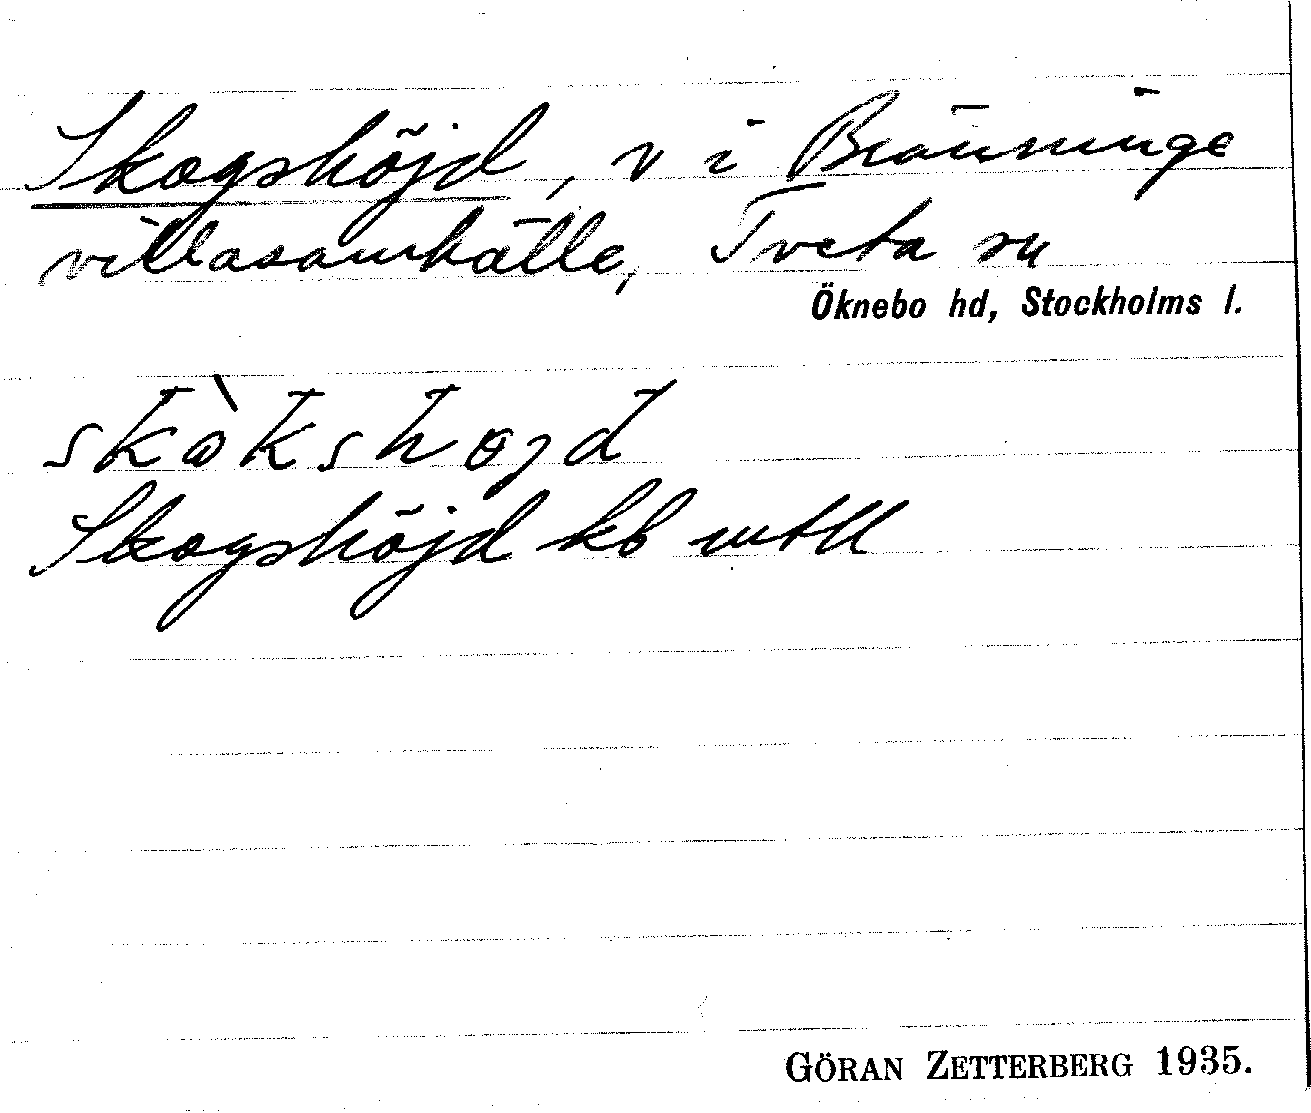 Skogshöjd, v i Bränninge
villasamhälle, Tveta sn
Öknebo hd, Stockholms l.
skòkshɵjd
Skogshöjd kb mtll
GÖRAN ZETTERBERG 1935.